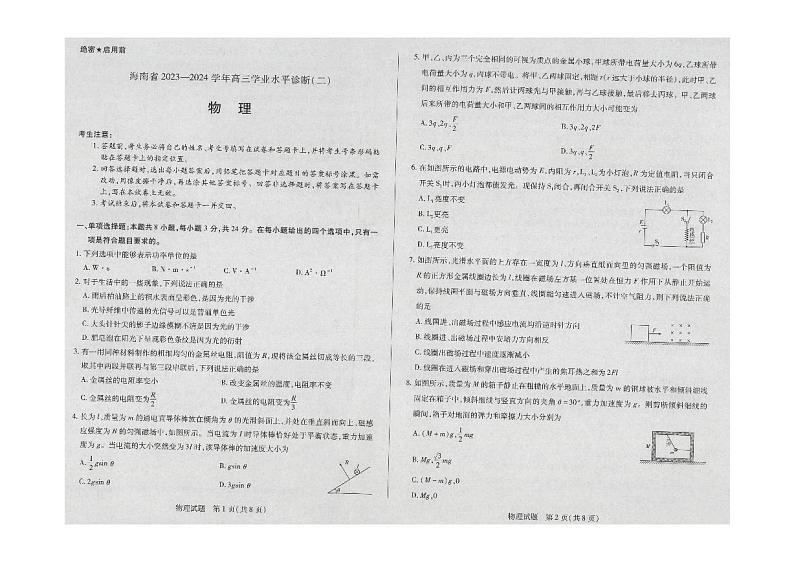 绝密★启用前
海南省 2023—2024 学年高三学业水平诊断(二)
物 理
考生注意:
1. 答题前,考生务必将自己的姓名、考生号填写在试卷和答题卡上,并将考生号条形码粘
贴在答题卡上的指定位置。
2. 回答选择题时,选出每小题答案后,用铅笔把答题卡对应题目的答案标号涂黑。如需
改动,用橡皮擦干净后,再选涂其他答案标号。回答非选择题时,将答案写在答题卡
上,写在本试卷上无效。
3. 考试结束后,将本试卷和答题卡一并交回。
一、单项选择题:本题共 8 小题,每小题 3 分,共 24 分。在每小题给出的四个选项中,只有一
项是符合题目要求的。
1. 下列选项中能够表示功率单位的是
A. W·s B. N·m·s⁻¹ C. V·A⁻¹ D. A²·Ω⁻¹
2. 对于生活中的一些现象,下列说法正确的是
A. 雨后柏油路上的积水表面呈彩色,是因为光的干涉
B. 光导纤维中传递的光信号可以是普通单色光
C. 大头针针尖的影子边缘模糊不清是因为光的干涉
D. 肥皂泡在阳光下呈现彩色条纹是因为光的衍射
3. 有一用同种材料制作的粗细均匀的金属丝电阻,阻值为 R,现将该金属丝切成等长的三段,
取其中两段并联再与第三段串联后,下列说法正确的是
A. 金属丝的电阻率变小 B. 改变金属丝的温度,电阻率不变
C. 金属丝的电阻变为 R/2 D. 金属丝的电阻变为 R/3
4. 长为 l,质量为 m 的通电直导体棒放在倾角为 θ 的光滑斜面上,并处在垂直斜面向上、磁感
应强度为 B 的匀强磁场中,如图所示。当电流为 I 时导体棒恰好处于平衡状态,重力加速
度为 g。当电流的大小突然变为 3I 时,该导体棒的加速度大小为
A. 1/2 gsin θ B. gsin θ
C. 2gsin θ D. 3gsin θ
B
θ
物理试题 第 1 页(共 8 页)
5. 甲、乙、丙为三个完全相同的可视为质点的金属小球,甲球所带电荷量大小为 6q,乙球所带
电荷量大小为 q,丙球不带电。将甲、乙两球固定,相距 r(r 远大于小球的半径),此时甲、乙
间的相互作用力为 F,然后让丙球先与甲接触,再与乙球接触,最后移去丙球。甲、乙两球
后来所带的电荷量大小和甲、乙两球间的相互作用力大小可能变为
A. 3q,2q,F/2 B. 3q,2q,2F
C. 3q,q,F D. 3q,q,F/2
6. 在如图所示的电路中,电源电动势为 E,内阻为 r,L₁、L₂为小灯泡,R 为定值电阻,当只闭合
开关 S₁时,两小灯泡都能发光。现保持 S₁闭合,再闭合开关 S₂,下列说法正确的是
A. L₁亮度不变
B. L₂更亮
C. L₁更亮
D. L₂亮度不变
7. 如图所示,光滑水平面的上方存在一宽度为 l、方向垂直纸面向里的匀强磁场,一个阻值为
R 的正方形金属线圈边长为 l,线圈在磁场左方某一位置处在恒力 F 作用下从静止开始运
动,保持线圈平面与磁场方向垂直,线圈能匀速进入磁场,不计空气阻力,则下列说法正确
的是
A. 线圈进、出磁场过程中感应电流均沿逆时针方向
B. 线圈进、出磁场过程中安培力方向相反
C. 线圈出磁场过程中速度逐渐减小
D. 线圈在进入磁场和穿出磁场过程中产生的焦耳热之和为 2Fl
F
8. 如图所示,质量为 M 的箱子静止在粗糙的水平地面上,质量为 m 的钢球被水平和倾斜细线
固定在箱子中,倾斜细线与竖直方向的夹角 θ=30°,重力加速度为 g。则剪断倾斜细线的
瞬间,箱子对地面的弹力和摩擦力大小分别为
A. (M+m)g,1/2 mg
B. Mg,√3/2 mg
C. (M−m)g,0
D. Mg,0
物理试题 第 2 页(共 8 页)